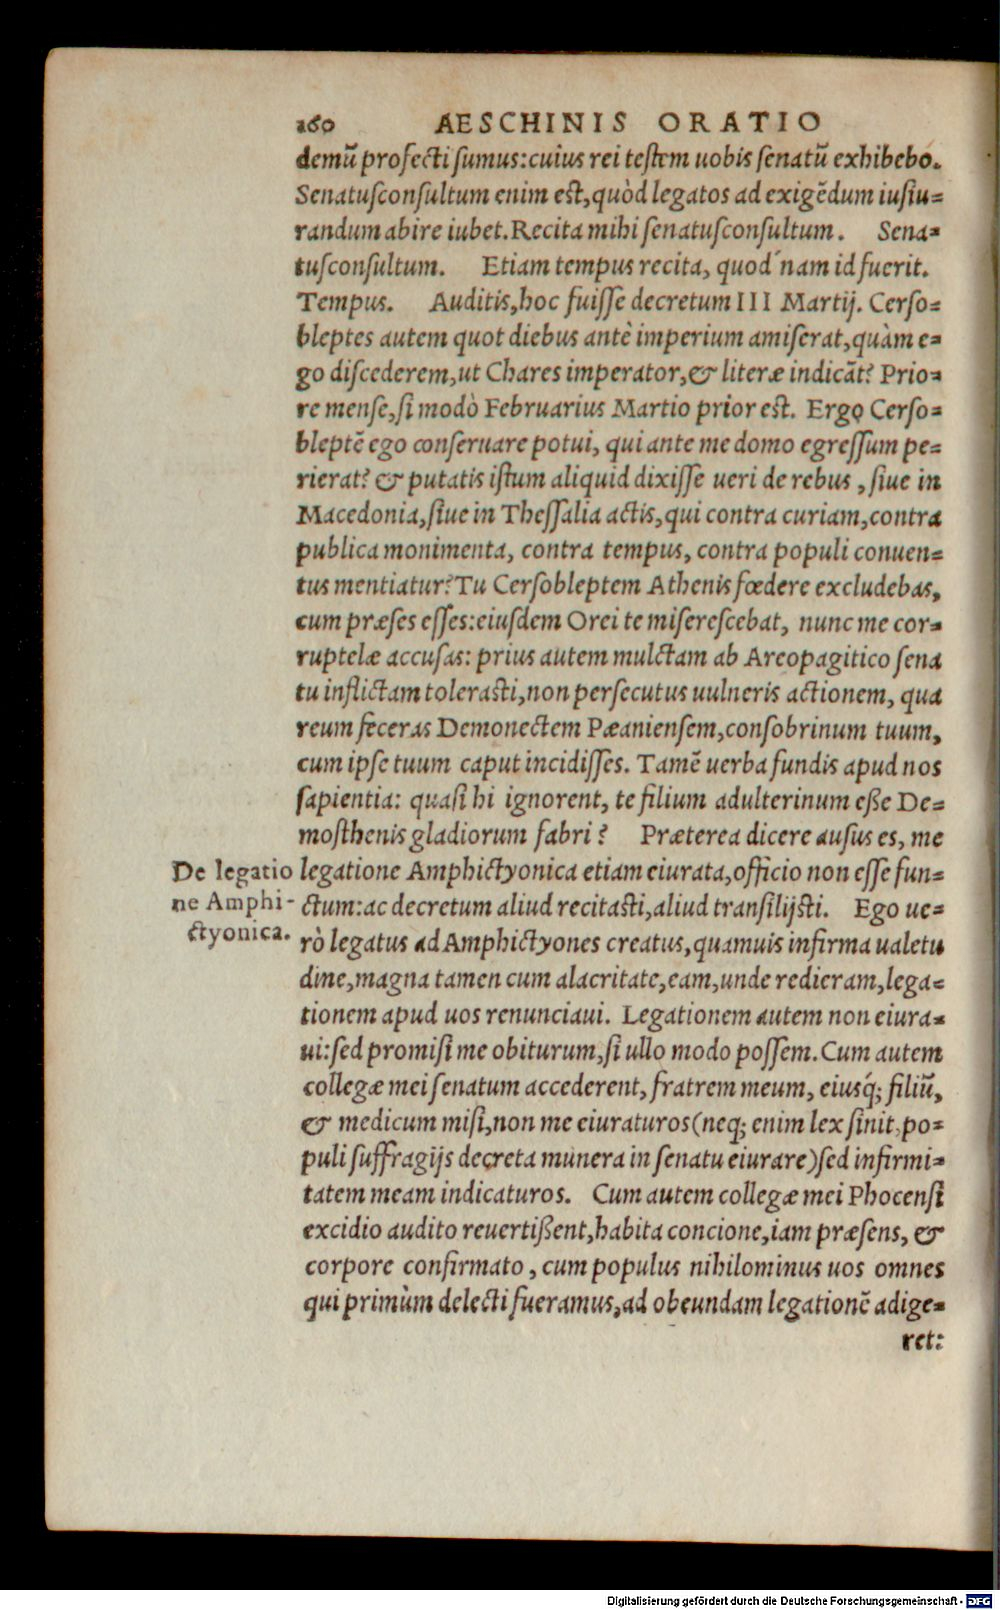 160 AESCHINIS ORATIO
demũ profecti sumus: cuius rei testem uobis senatũ exhibebo.
Senatusconsultum enim est, quòd legatos ad exigẽdum iusiu=
randum abire iubet. Recita mihi senatusconsultum. Sena=
tusconsultum. Etiam tempus recita, quod´nam id fuerit.
Tempus. Auditis, hoc fuisse decretum III Martij. Cerso=
bleptes autem quot diebus antè imperium amiserat, quàm e=
go discederem, ut Chares imperator, & literæ indicãt? Prio=
re mense, si modò Februarius Martio prior est. Ergo Cerso=
bleptẽ ego conseruare potui, qui ante me domo egressum pe=
rierat? & putatis istum aliquid dixisse ueri de rebus, siue in
Macedonia, siue in Thessalia actis, qui contra curiam, contra
publica monimenta, contra tempus, contra populi conuen=
tus mentiatur? Tu Cersobleptem Athenis fœdere excludebas,
cum præses esses: eiusdem Orei te miserescebat, nunc me cor=
ruptelæ accusas: prius autem mulctam ab Areopagitico sena
tu inflictam tolerasti, non persecutus uulneris actionem, qua
reum feceras Demonectem Pæaniensem, consobrinum tuum,
cum ipse tuum caput incidisses. Tamẽ uerba fundis apud nos
sapientia: quasi hi ignorent, te filium adulterinum eße De=
mosthenis gladiorum fabri? Præterea dicere ausus es, me
De legatio legatione Amphictyonica etiam eiurata, officio non esse fun=
ne Amphi- ctum: ac decretum aliud recitasti, aliud transilijsti. Ego ue=
ctyonica. rò legatus ad Amphictyones creatus, quamuis infirma ualetu
dine, magna tamen cum alacritate, eam, unde redieram, lega=
tionem apud uos renunciaui. Legationem autem non eiura=
ui: sed promisi me obiturum, si ullo modo possem. Cum autem
collegæ mei senatum accederent, fratrem meum, eiusq́; filiũ,
& medicum misi, non me eiuraturos (neq; enim lex sinit, po=
puli suffragijs decreta munera in senatu eiurare) sed infirmi=
tatem meam indicaturos. Cum autem collegæ mei Phocensi
excidio audito reuertißent, habita concione, iam præsens, &
corpore confirmato, cum populus nihilominus uos omnes
qui primùm delecti fueramus, ad obeundam legationẽ adige=
ret:
Digitalisierung gefördert durch die Deutsche Forschungsgemeinschaft - DFG